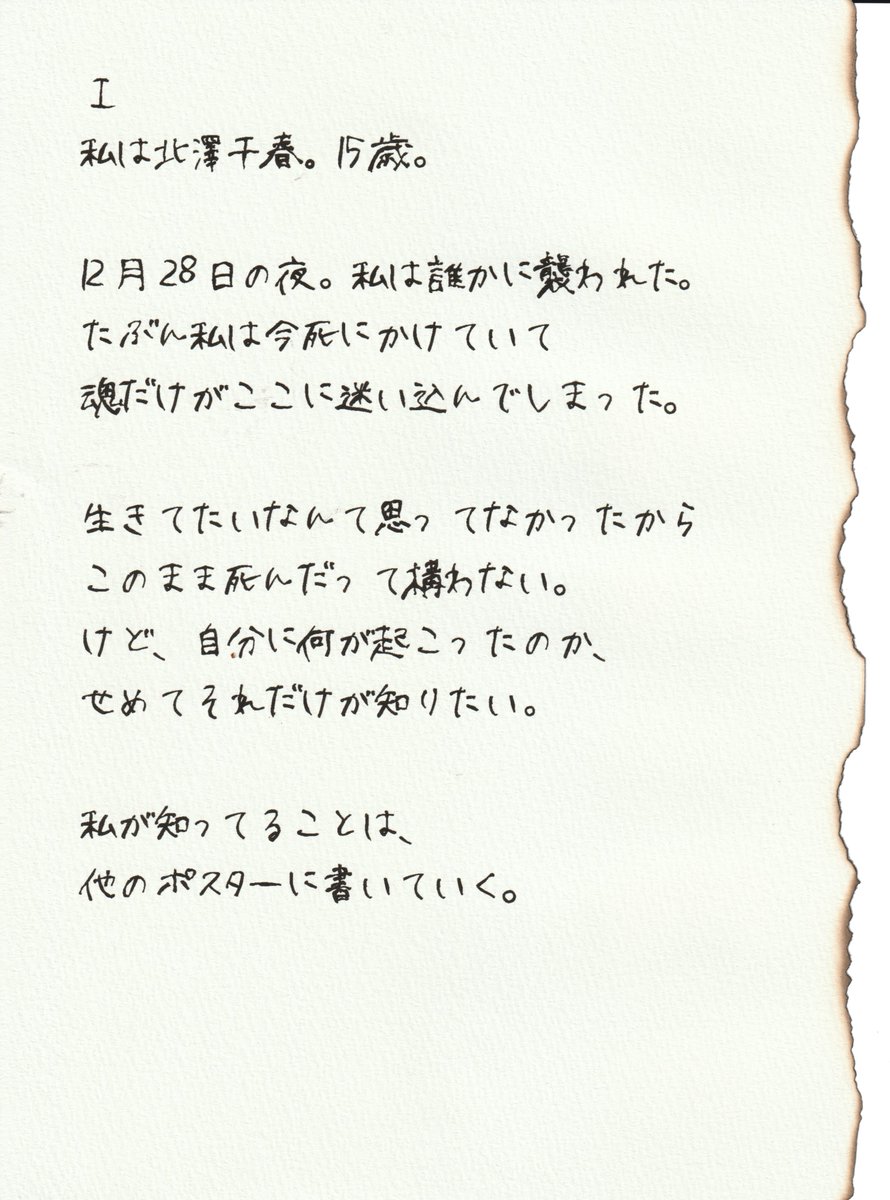 I
私は北澤千春。15歳。
12月28日の夜。私は誰かに襲われた。
たぶん私は今死にかけていて
魂だけがここに迷い込んでしまった。
生きてたいなんて思ってなかったから
このまま死んだって構わない。
けど、自分に何が起こったのか、
せめてそれだけが知りたい。
私が知ってることは、
他のポスターに書いていく。